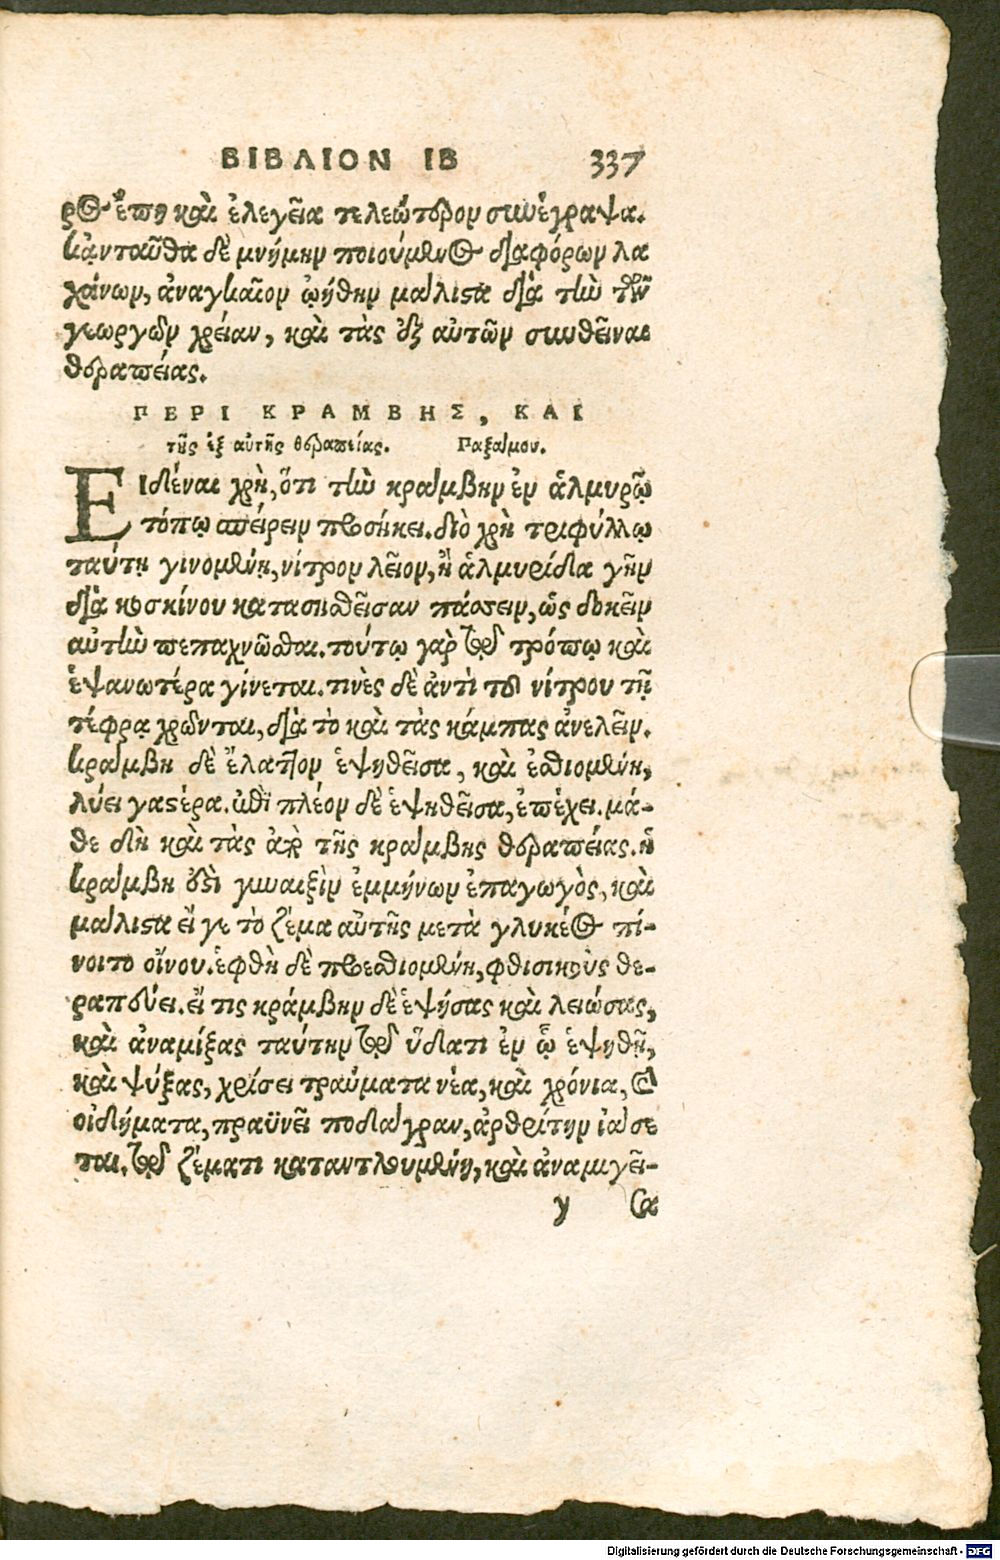 ΒΙΒΛΙΟΝ ΙΒ 337
ρος ἔπη καὶ ἐλεγεῖα τελεώτερον συνέγραψα.
κᾀνταῦθα δὲ μνήμην ποιούμενος διαφόρων λα
χάνων, ἀναγκαῖον ᾠήθην μάλιστα διὰ τὴν τῶν
γεωργῶν χρείαν, καὶ τὰς ἐξ αὐτῶν συνθεῖναι
θεραπείας.
ΠΕΡΙ ΚΡΑΜΒΗΣ, ΚΑΙ
τῆς ἐξ αὐτῆς θεραπείας. Παξάμου.
ΕΙδέναι χρὴ, ὅτι τὴν κράμβην ἐν ἁλμυρῷ
τόπῳ σπείρειν προσήκει. διὸ χρὴ τριφύλλῳ
ταύτῃ γινομένῃ, νίτρον λεῖον, ἢ ἁλμυρίδια γῆν
διὰ κοσκίνου κατασησθεῖσαν πάσσειν, ὡς δοκεῖν
αὐτὴν πεπαχνῶσθαι. τούτῳ γὰρ τῷ τρόπῳ καὶ
ἑψανωτέρα γίνεται. τινὲς δὲ ἀντὶ τοῦ νίτρου τῇ
τέφρᾳ χρῶνται, διὰ τὸ καὶ τὰς κάμπας ἀνελεῖν.
κράμβη δὲ ἔλαττον ἑψηθεῖσα, καὶ ἐσθιομένη,
λύει γαστέρα. ἐπὶ πλέον δὲ ἑψηθεῖσα, ἐπέχει. μά-
θε δὴ καὶ τὰς ἀπὸ τῆς κράμβης θεραπείας. ἡ
κράμβη ἐστὶ γυναιξὶν ἐμμήνων ἐπαγωγὸς, καὶ
μάλιστα εἴ γε τὸ ζέμα αὐτῆς μετὰ γλυκέος πί-
νοιτο οἴνου. ἑφθὴ δὲ προεσθιομένη, φθισικοὺς θε-
ραπεύει. εἴ τις κράμβην δὲ ἑψήσας καὶ λειώσας,
καὶ ἀναμίξας ταύτην τῷ ὕδατι ἐν ᾧ ἑψηθῇ,
καὶ ψύξας, χρίσει τραύματα νέα, καὶ χρόνια, καὶ
οἰδήματα, πραϋνεῖ ποδάγραν, ἀρθρίτην ἰάσε
ται. τῷ ζέματι καταντλουμένη, καὶ ἀναμιγεῖ-
y σα
Digitalisierung gefördert durch die Deutsche Forschungsgemeinschaft - DFG